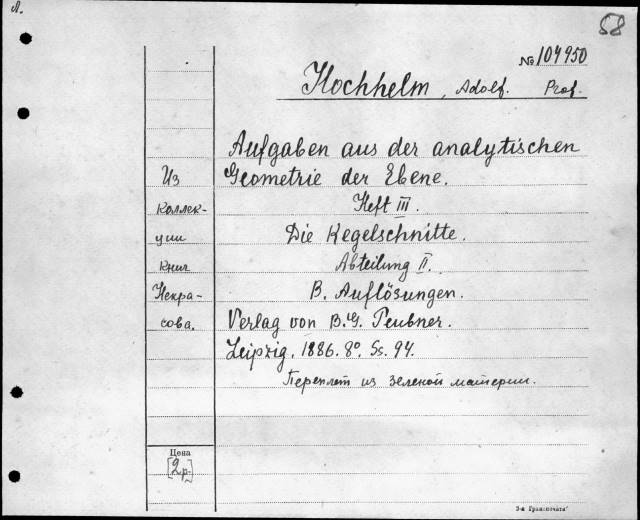 А.
58
№ 104950
Hochhelm, Adolf. Prof.
Aufgaben aus der analytischen
Geometrie der Ebene.
Heft III.
Die Kegelschnitte.
Abteilung II.
B. Auflösungen.
Verlag von B. G. Teubner.
Leipzig. 1886. 8º. Ss. 94.
Переплет из зеленой материи.
Из
коллек-
ции
книг
Некра-
сова.
Цена
[2 р.]
3-я Гранпечати